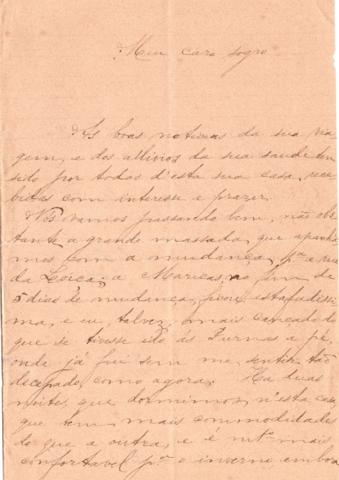 Meu caro sogro
As boas noticias da sua via
gem, e dos allivios da sua saude tem
sido por todos d'esta sua casa, rece
bidas com interesse e prazer.
Nós vamos passando bem, não obs
tante a grande massada, que apanha
mos com a mudança, pª a rua
da Loiça; a Maricas, no fim de
5 dias de mudança, ficou estafadissi
ma, e eu, talvez, mais cançado do
que se tivesse ido ás Furnas a pé,
onde já fui sem me sentir tão
como agora. Ha duas
noite, que dormimos, n'esta casa
que tem mais commodidades
do que a outra, e é mtº mais
confortavel pª o inverno, embora